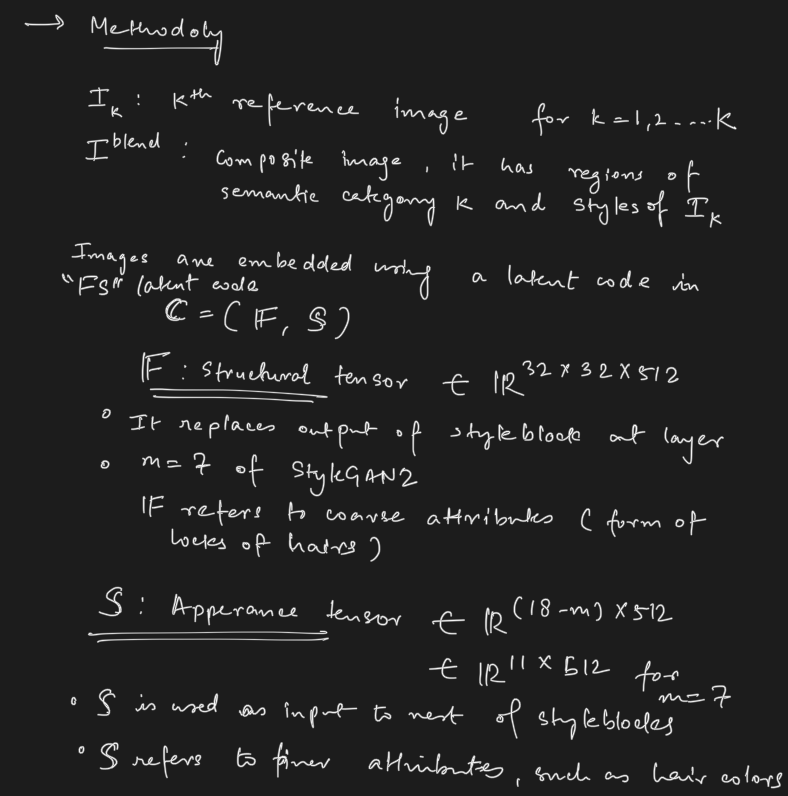 → Methodoly
I_k : kth reference image for k=1,2-....K
I^blend : composite image, it has regions of
semantic category k and styles of I_k
Images are embedded using a latent code in
"FS" latent code
C = (F, S)
F : Structural tensor ∈ R^32×32×512
° It replaces output of style block at layer
° m=7 of StyleGAN2
F refers to coarse attributes (form of
locks of hairs)
S : Apperance tensor ∈ R^(18-m)×512
∈ R^11×512 for
m=7
• S is used as input to rest of styleblocks
° S refers to finer attributes, such as hair colors